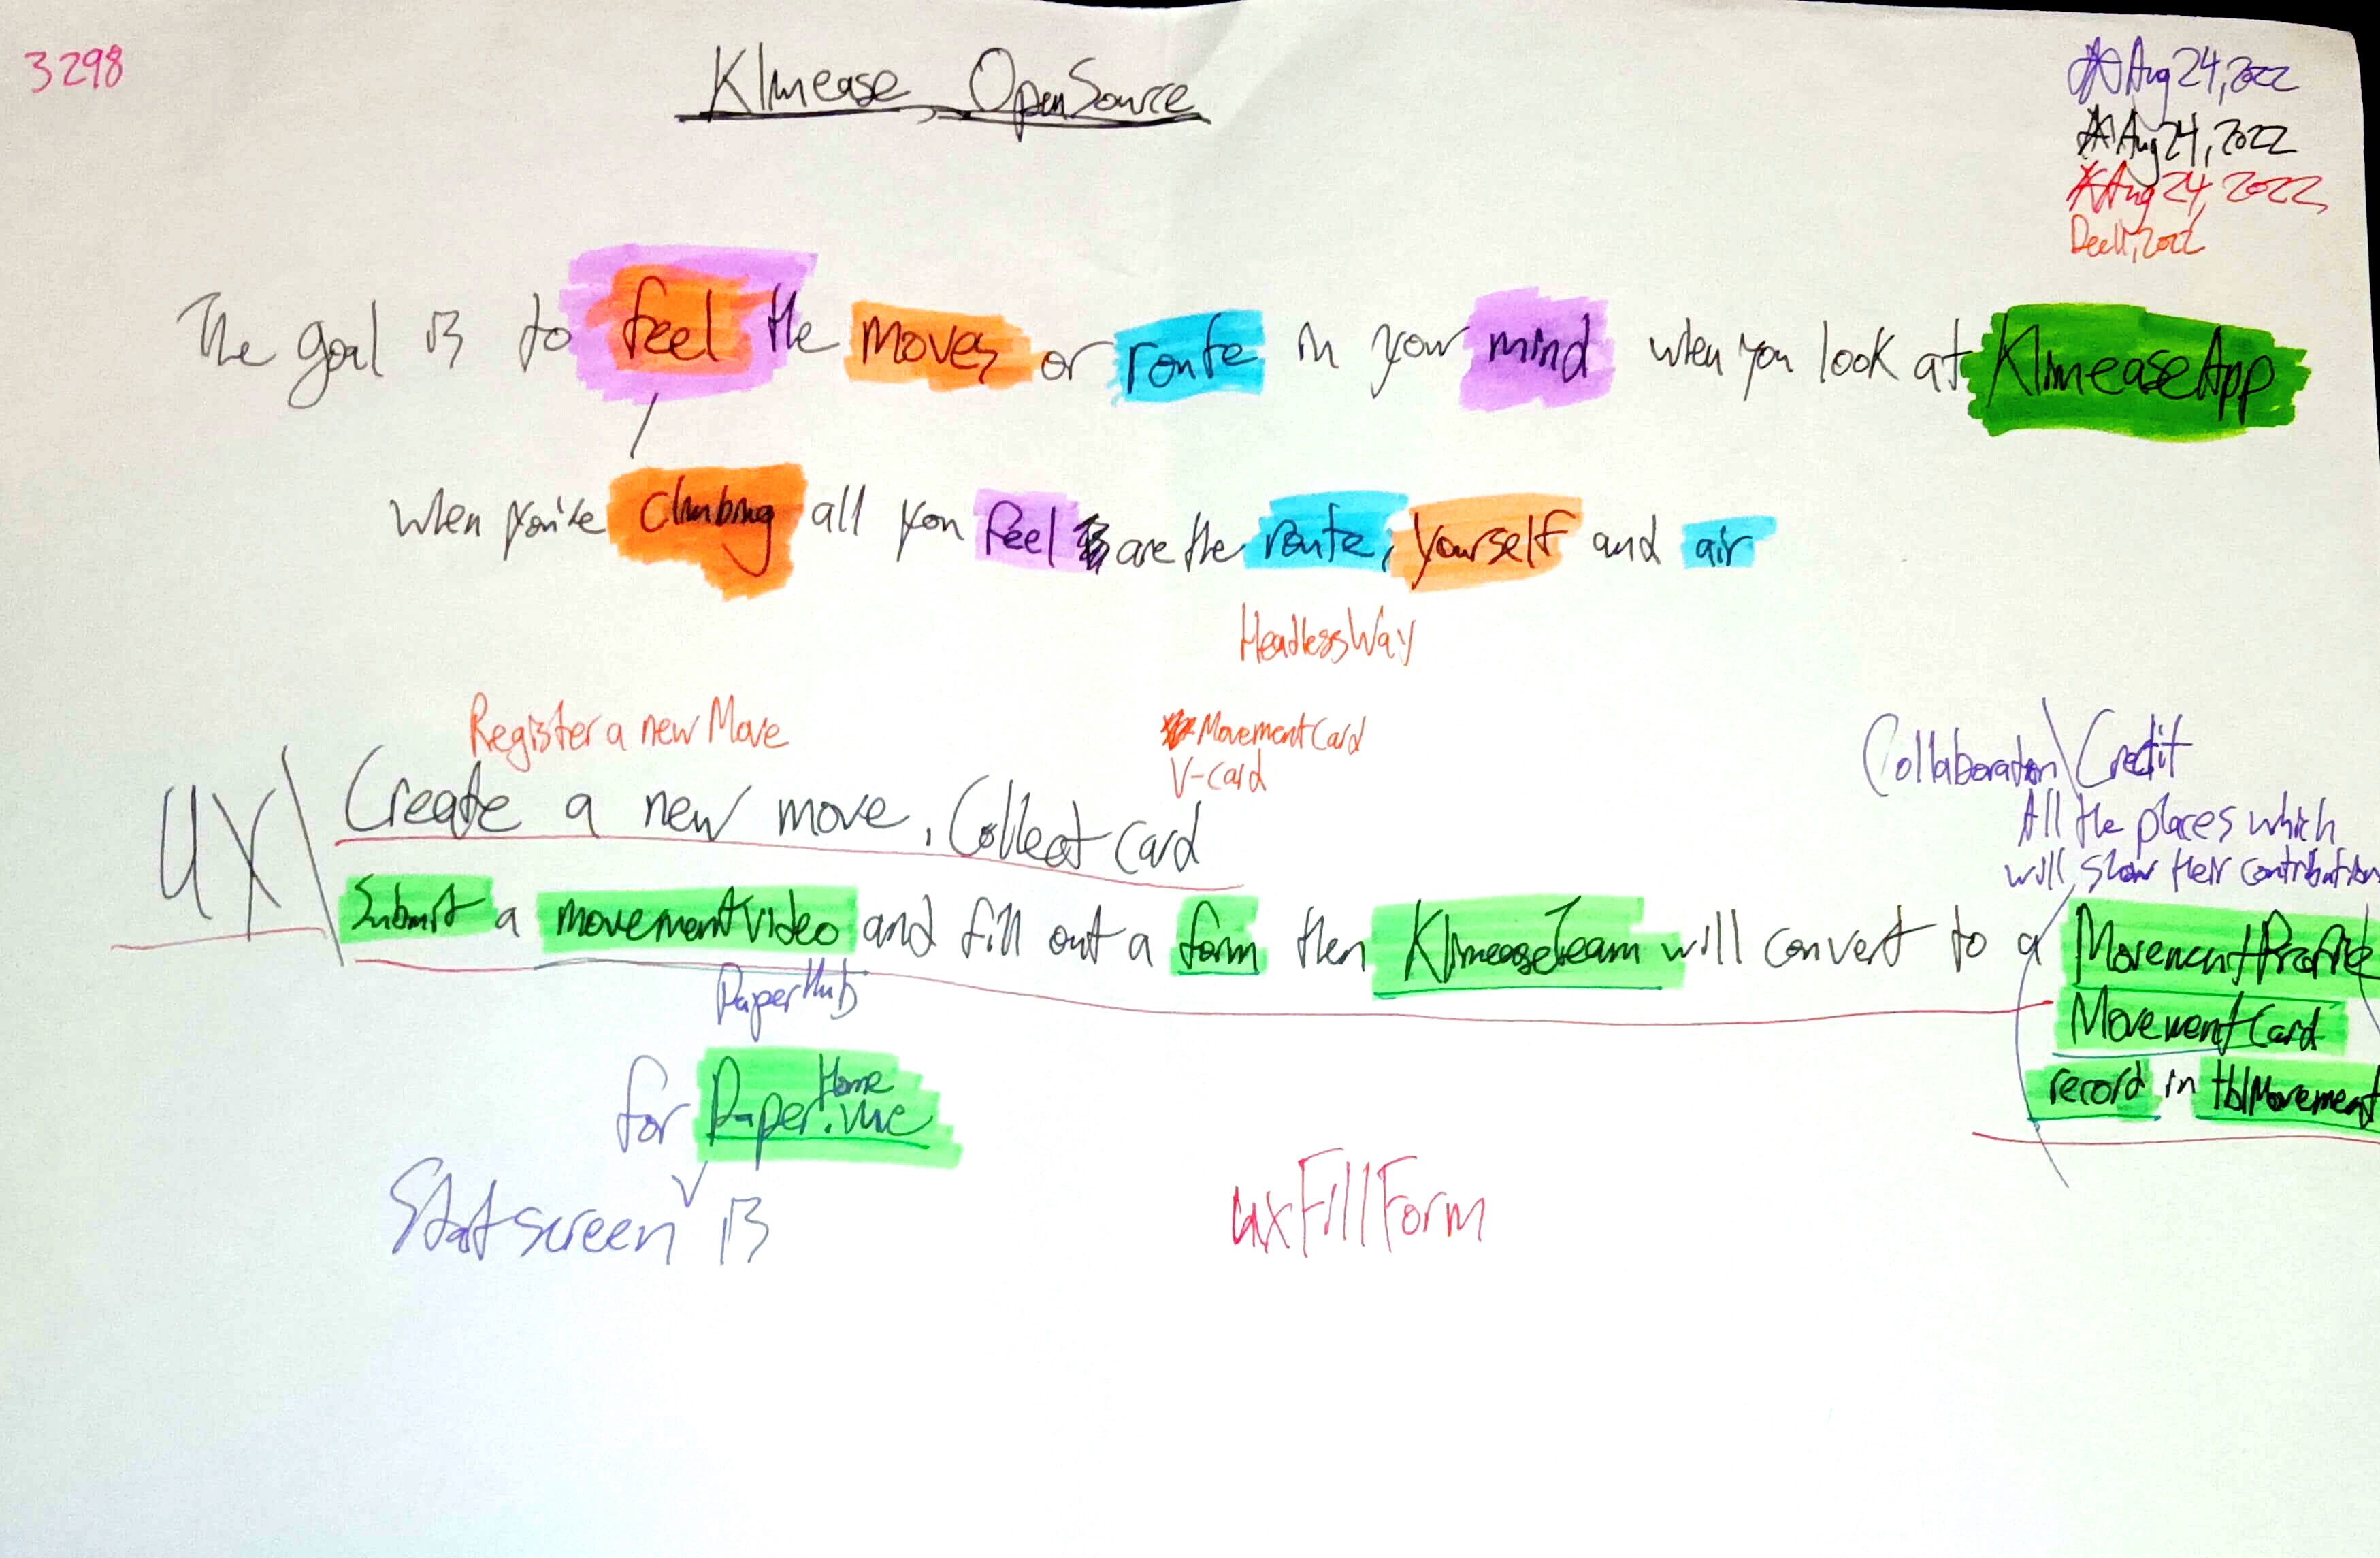 3298
Klmease, OpenSource
Aug 24, 2022
Aug 24, 2022
Aug 24, 2022
The goal is to feel the moves or route in your mind when you look at KlmeaseApp
when you're climbing all you feel are the route, yourself and air
HeadlessWay
Register a new Move
MovementCard
V-card
Collaboration\Credit
All the places which
will show their contribution
UX\ Create a new move, Collect Card
Submit a movementVideo and fill out a form then KlmeaseTeam will convert to a MovementProfile
MovementCard
record in tblMovement
PaperHub
for PaperHome.vue
Statscreen is
uxFillForm